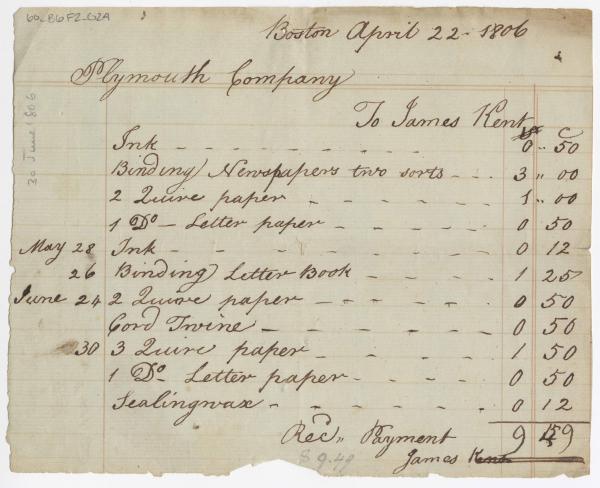 60_B6F2_G2A
Boston April 22 - 1806
Plymouth Company
30 June 1806
To James Kent
C
Ink - - - - - - - - - 0 " 50
Binding Newspapers two sorts - - - 3 " 00
2 Quire paper - - - - - 1 " 00
1 Do - Letter paper - - - - - 0 50
May 28 Ink - - - - - - - - 0 12
26 Binding Letter Book - - - - 1 25
June 24 2 Quire paper - - - - - 0 50
Cord Twine - - - - - - 0 50
30 3 Quire paper - - - - - 1 50
1 Do - Letter paper - - - - 0 50
Sealingwax - - - - - - 0 12
Recd,, Payment 9 49
James Kent
$ 9.49